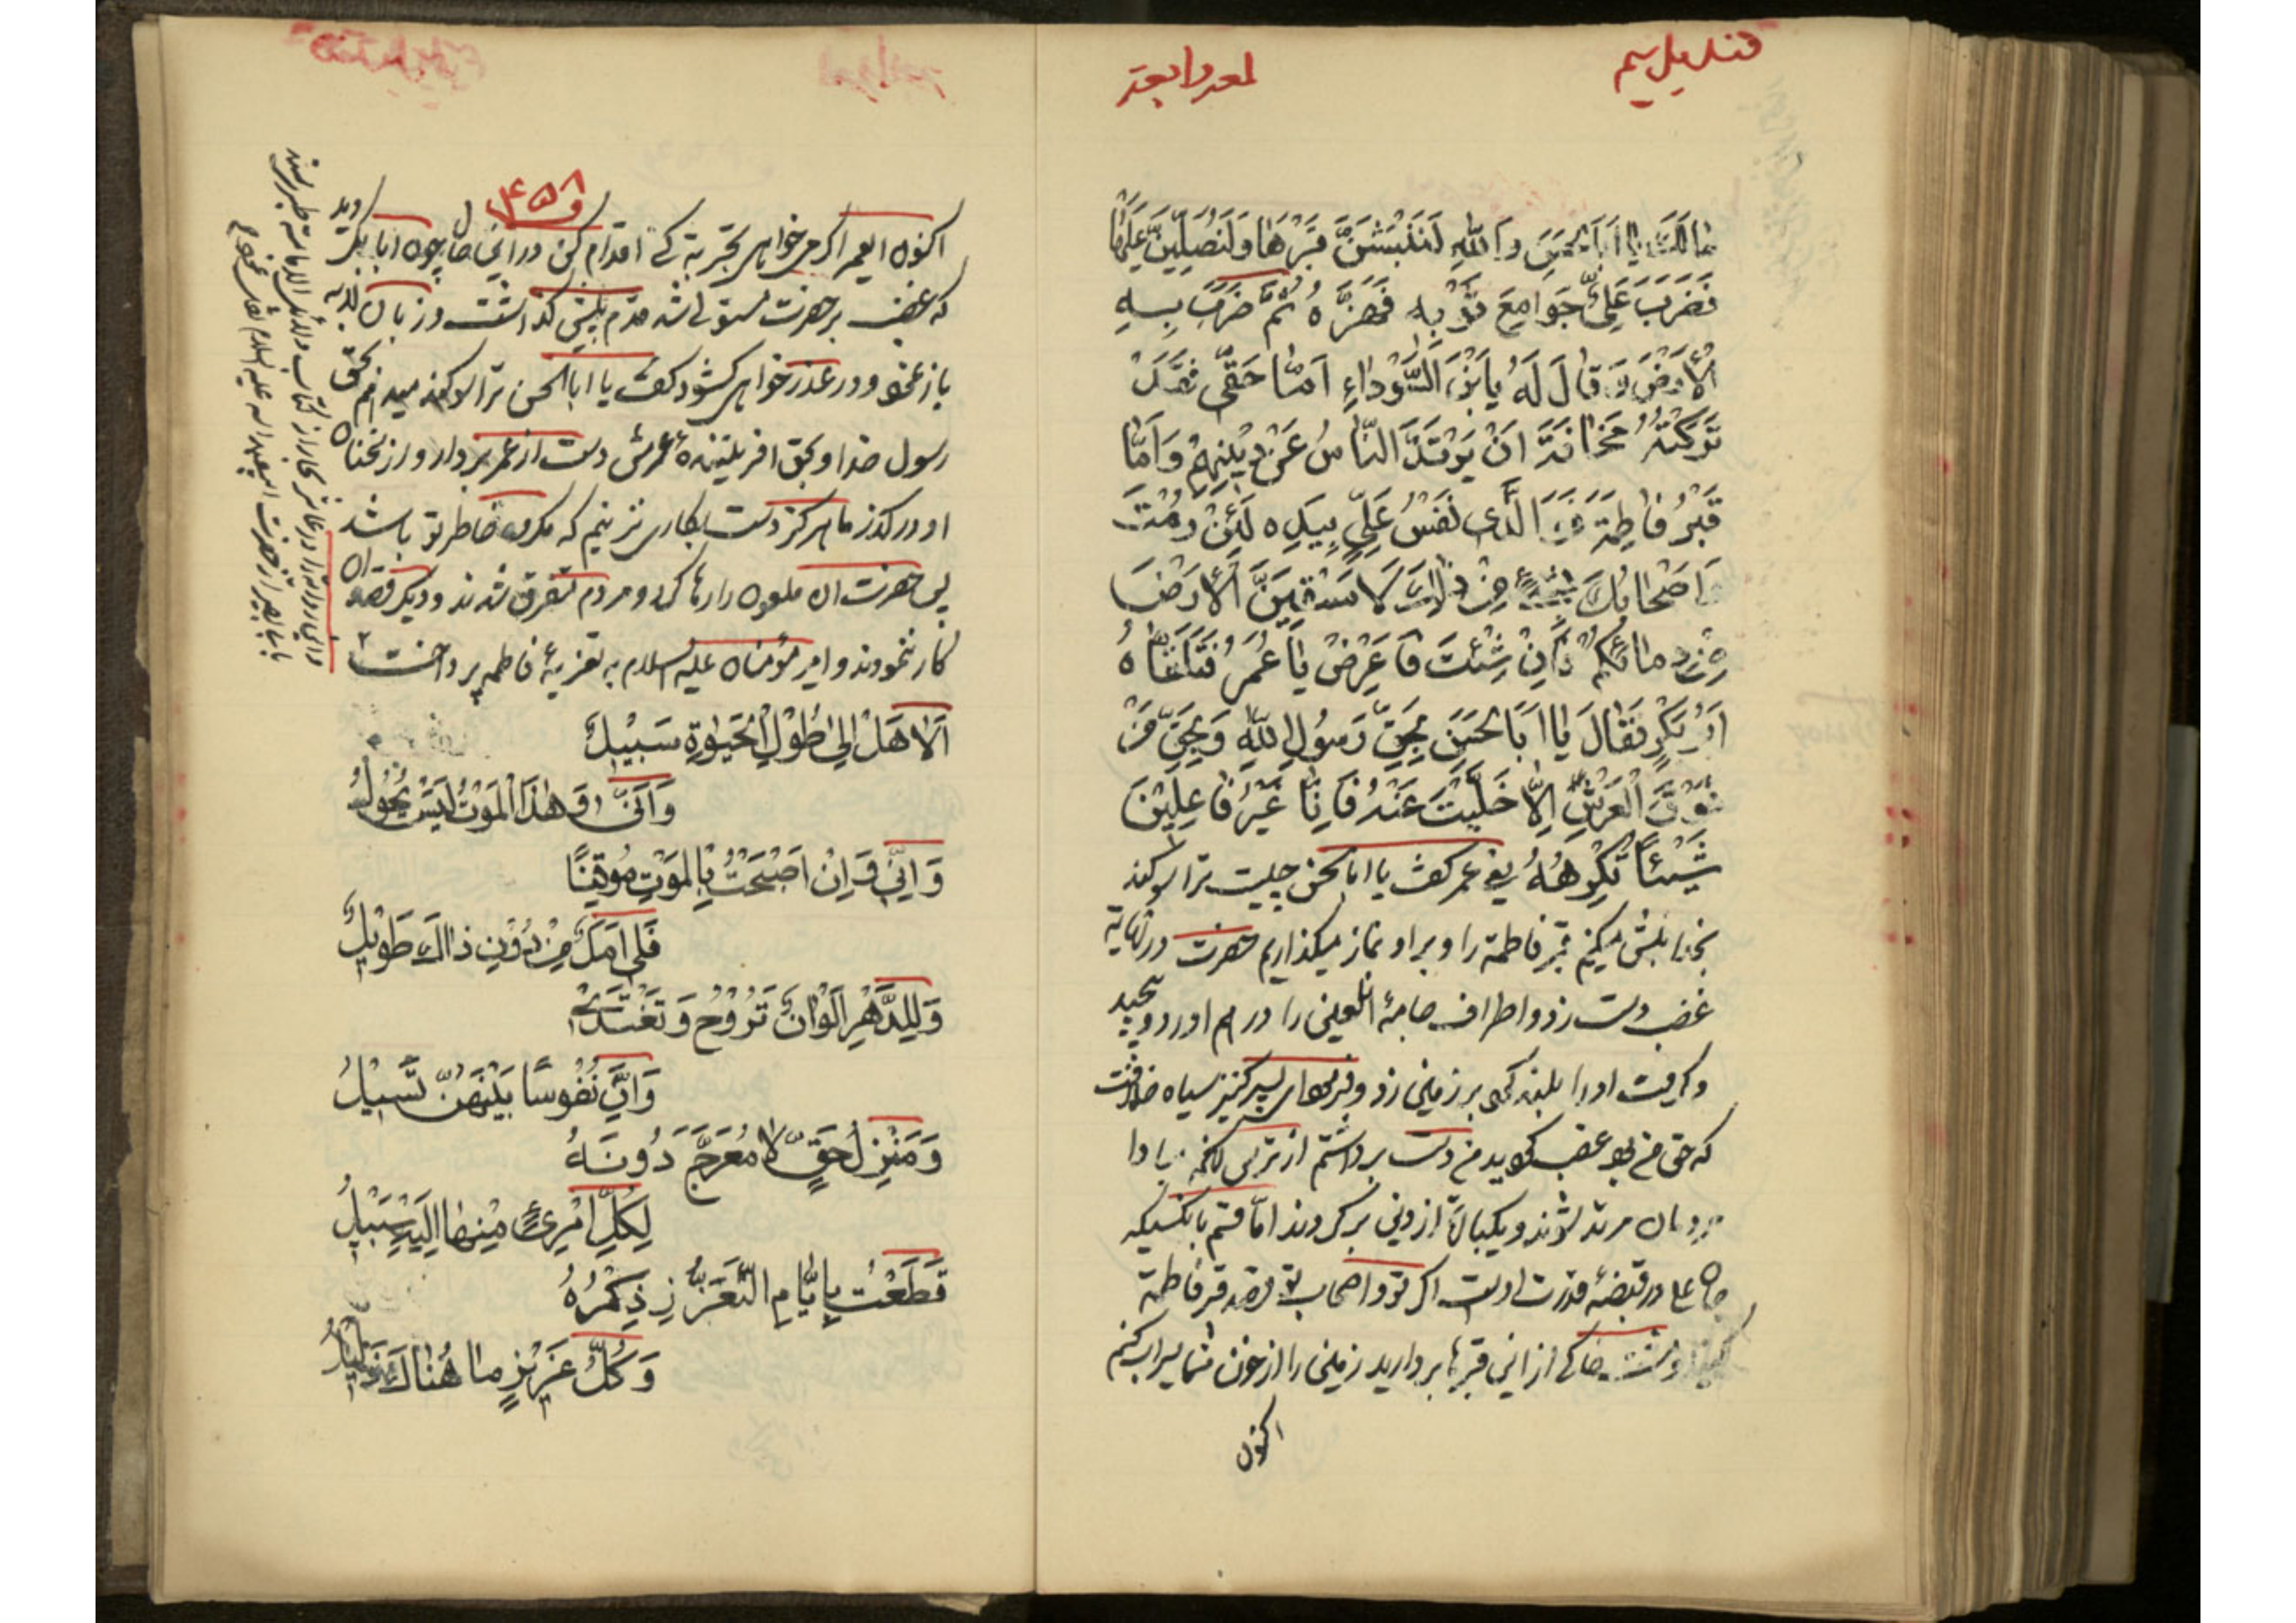 قندیل سیم
لمعه رابعه
مالَكَ یا اَبَا الحَسَنِ وَاللّٰهِ لَنَنْبِشَنَّ قَبْرَهٰا وَلَنُصَلِّیَنَّ عَلَیْهٰا
فَضَرَبَ عَلِیٌّ جَوامِعَ ثَوْبِهِ فَهَزَّهُ ثُمَّ ضَرَبَ بِهِ
الْاَرْضَ وَ قالَ لَهُ یابْنَ السَّوْداءِ اَمّا حَقّی فَقَدْ
تَرَكْتُهُ مَخافَةَ اَنْ یَرْتَدَّ النّاسُ عَنْ دِیْنِهِمْ وَ اَمّا
قَبْرُ فاطِمَةَ فَوَ الَّذی نَفْسُ عَلِیٍّ بِیَدِهِ لَئِنْ رُمْتَ
وَ اَصْحابُكَ شَیْئًا مِنْ ذٰلِكَ لَاَسْقِیَنَّ الْاَرْضَ
مِنْ دِمائِكُمْ فَاِنْ شِئْتَ فَاَعْرِضْ یا عُمَرُ فَتَلَقّاهُ
اَبُو بَكْرٍ فَقالَ یا اَبَا الْحَسَنِ بِحَقِّ رَسُولِ اللّٰهِ وَ بِحَقِّ مَنْ
فَوْقَ الْعَرْشِ اِلّا خَلَّیْتَ عَنْهُ فَاِنّا غَیْرُ فاعِلِیْنَ
شَیْئًا تَكْرِهُهُ یعنی عمر كفت یا ابا الحسن چیست ترا سوكند
بخدا نبش میكنیم قبر فاطمه را و بر او نماز میكذاریم حضرت در نهایة
غضب دست زد و اطراف جامهٔ آنلعین را در هم اورد و پیچید
و كرفت او را بلند كرد بر زمین زد و فرمود ای پسر كنیز سیاه خلافت
كه حق من بود غضب كردید من دست برداشتم از ترس آنكه مبادا
مردمان مرتد شوند و یكباره از دین بر كردند امّا قسم بانكسیكه
جان علی در قبضهٔ قدرت اوست اكر تو و اصحاب تو قصد قبر فاطمه
خاكی از این قبرها بردارید زمین را از خون شما سیراب كنم
اكنون
۴۵۸
اكنون ایعمر اكر میخواهی تجربه كنی اقدام كن در این حال چون ابابكر دید
كه غضب بر حضرت مستولی شد قدم پیش كذاشت و زبان بلابه
باز نمود و در عذرخواهی كشود كفت یا ابا الحسن ترا سوكند میدهم بحق
رسول خدا و بحق افریننده عرش دست از عمر بردار و از سخنان
او در كذر ما هركز دست بكاری نزنیم كه مكروه خاطر تو باشد
پس حضرت ان ملعون را رها كرد و مردم متفرق شدند و دیكر قصد ان
كار ننمودند و امیر مؤمنان علیه السلام به تعزیهٔ فاطمه پرداخت
اَلا هَلْ اِلیٰ طُوْلِ الْحَیٰوةِ سَبِیْلُ
وَ اَنّیٰ وَ هٰذَا الْمَوْتُ لَیْسَ یُحُولُ
وَ اِنّی وَ اِنْ اَصْبَحْتُ بِالْمَوْتِ مُوقِنًا
فَلی اَمَلٌ مِنْ دُوْنِ ذالِكَ طَوْیلٌ
وَ لِلدَّهْرِ اَلْوانٌ تَرُوْحُ وَ تَغْتَدی
وَ اِنَّ نُفُوسًا بَیْنَهُنَّ تَسَیْلُ
وَ مَنْزِلُ حَقٍّ لا مُعَرَّجَ دُونَهُ
لِكُلِّ امْرِئٍ مِنْها اِلَیْهِ سَبْیلُ
قَطَعْتُ بِاَیّامِ التَّعَزُّزِ ذِكْرَهُ
وَ كُلُّ عَزیْزٍ ما هُناكَ ذَلیلُ